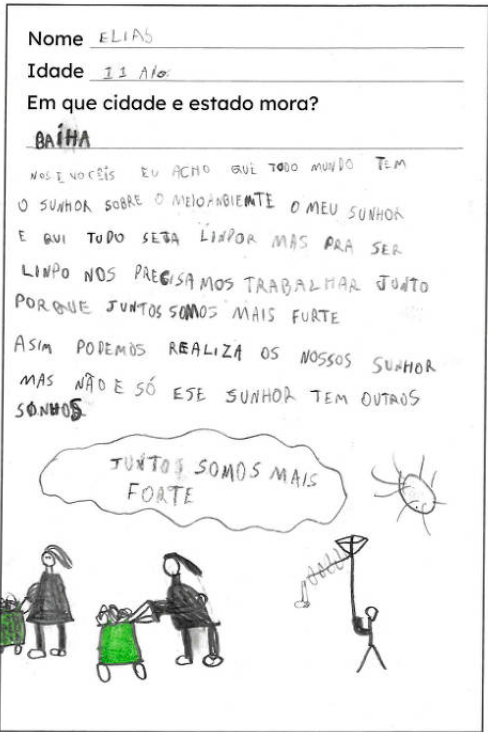 Nome ELIAS
Idade 11 Ano.
Em que cidade e estado mora?
BAÍHA
NOS E VOCÊIS EU ACHO QUE TODO MUNDO TEM
O SUNHOR SOBRE O MEIOANBIEMTE O MEU SUNHOR
E QUI TUDO SEJA LINPOR MAS PRA SER
LINPO NOS PRECISAMOS TRABALHAR JUNTO
PORQUE JUNTOS SOMOS MAIS FURTE
ASIM PODEMOS REALIZA OS NOSSOS SUNHOR
MAS NÃO E SÓ ESE SUNHOR TEM OUTROS
SONHOS
JUNTOS SOMOS MAIS
FORTE